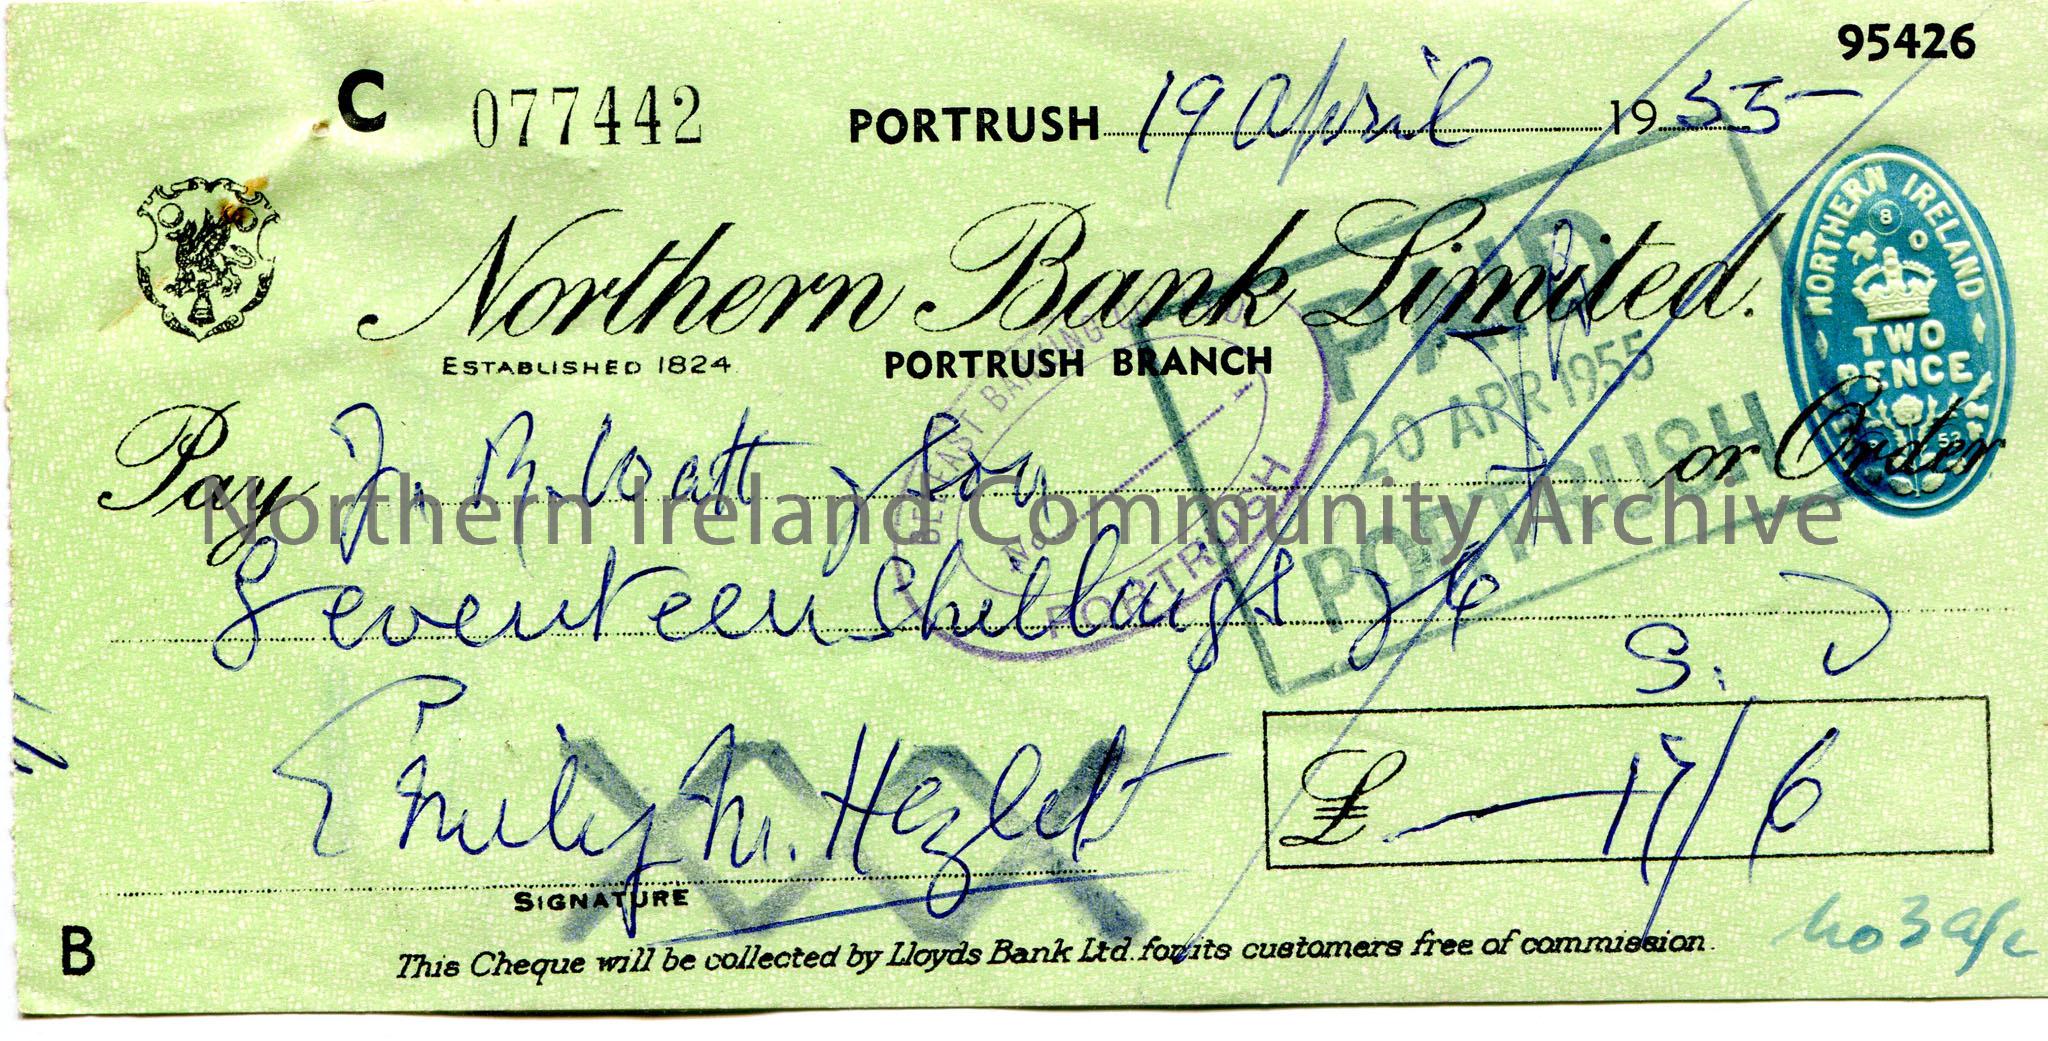 95426
C 077442 PORTRUSH 19 April 1955
Northern Bank Limited.
ESTABLISHED 1824 PORTRUSH BRANCH
NORTHERN IRELAND
8 0
TWO PENCE
52
PAID
20 APR 1955
PORTRUSH
BELFAST BANKING
No.
PORTRUSH
Pay J. R. Watt & Son or Order
Seventeen Shillings & 6
S. D
£ — 17/6
Emily M. Hezlet
SIGNATURE
No 3 a/c
B This Cheque will be collected by Lloyds Bank Ltd. for its customers free of commission.
Northern Ireland Community Archive